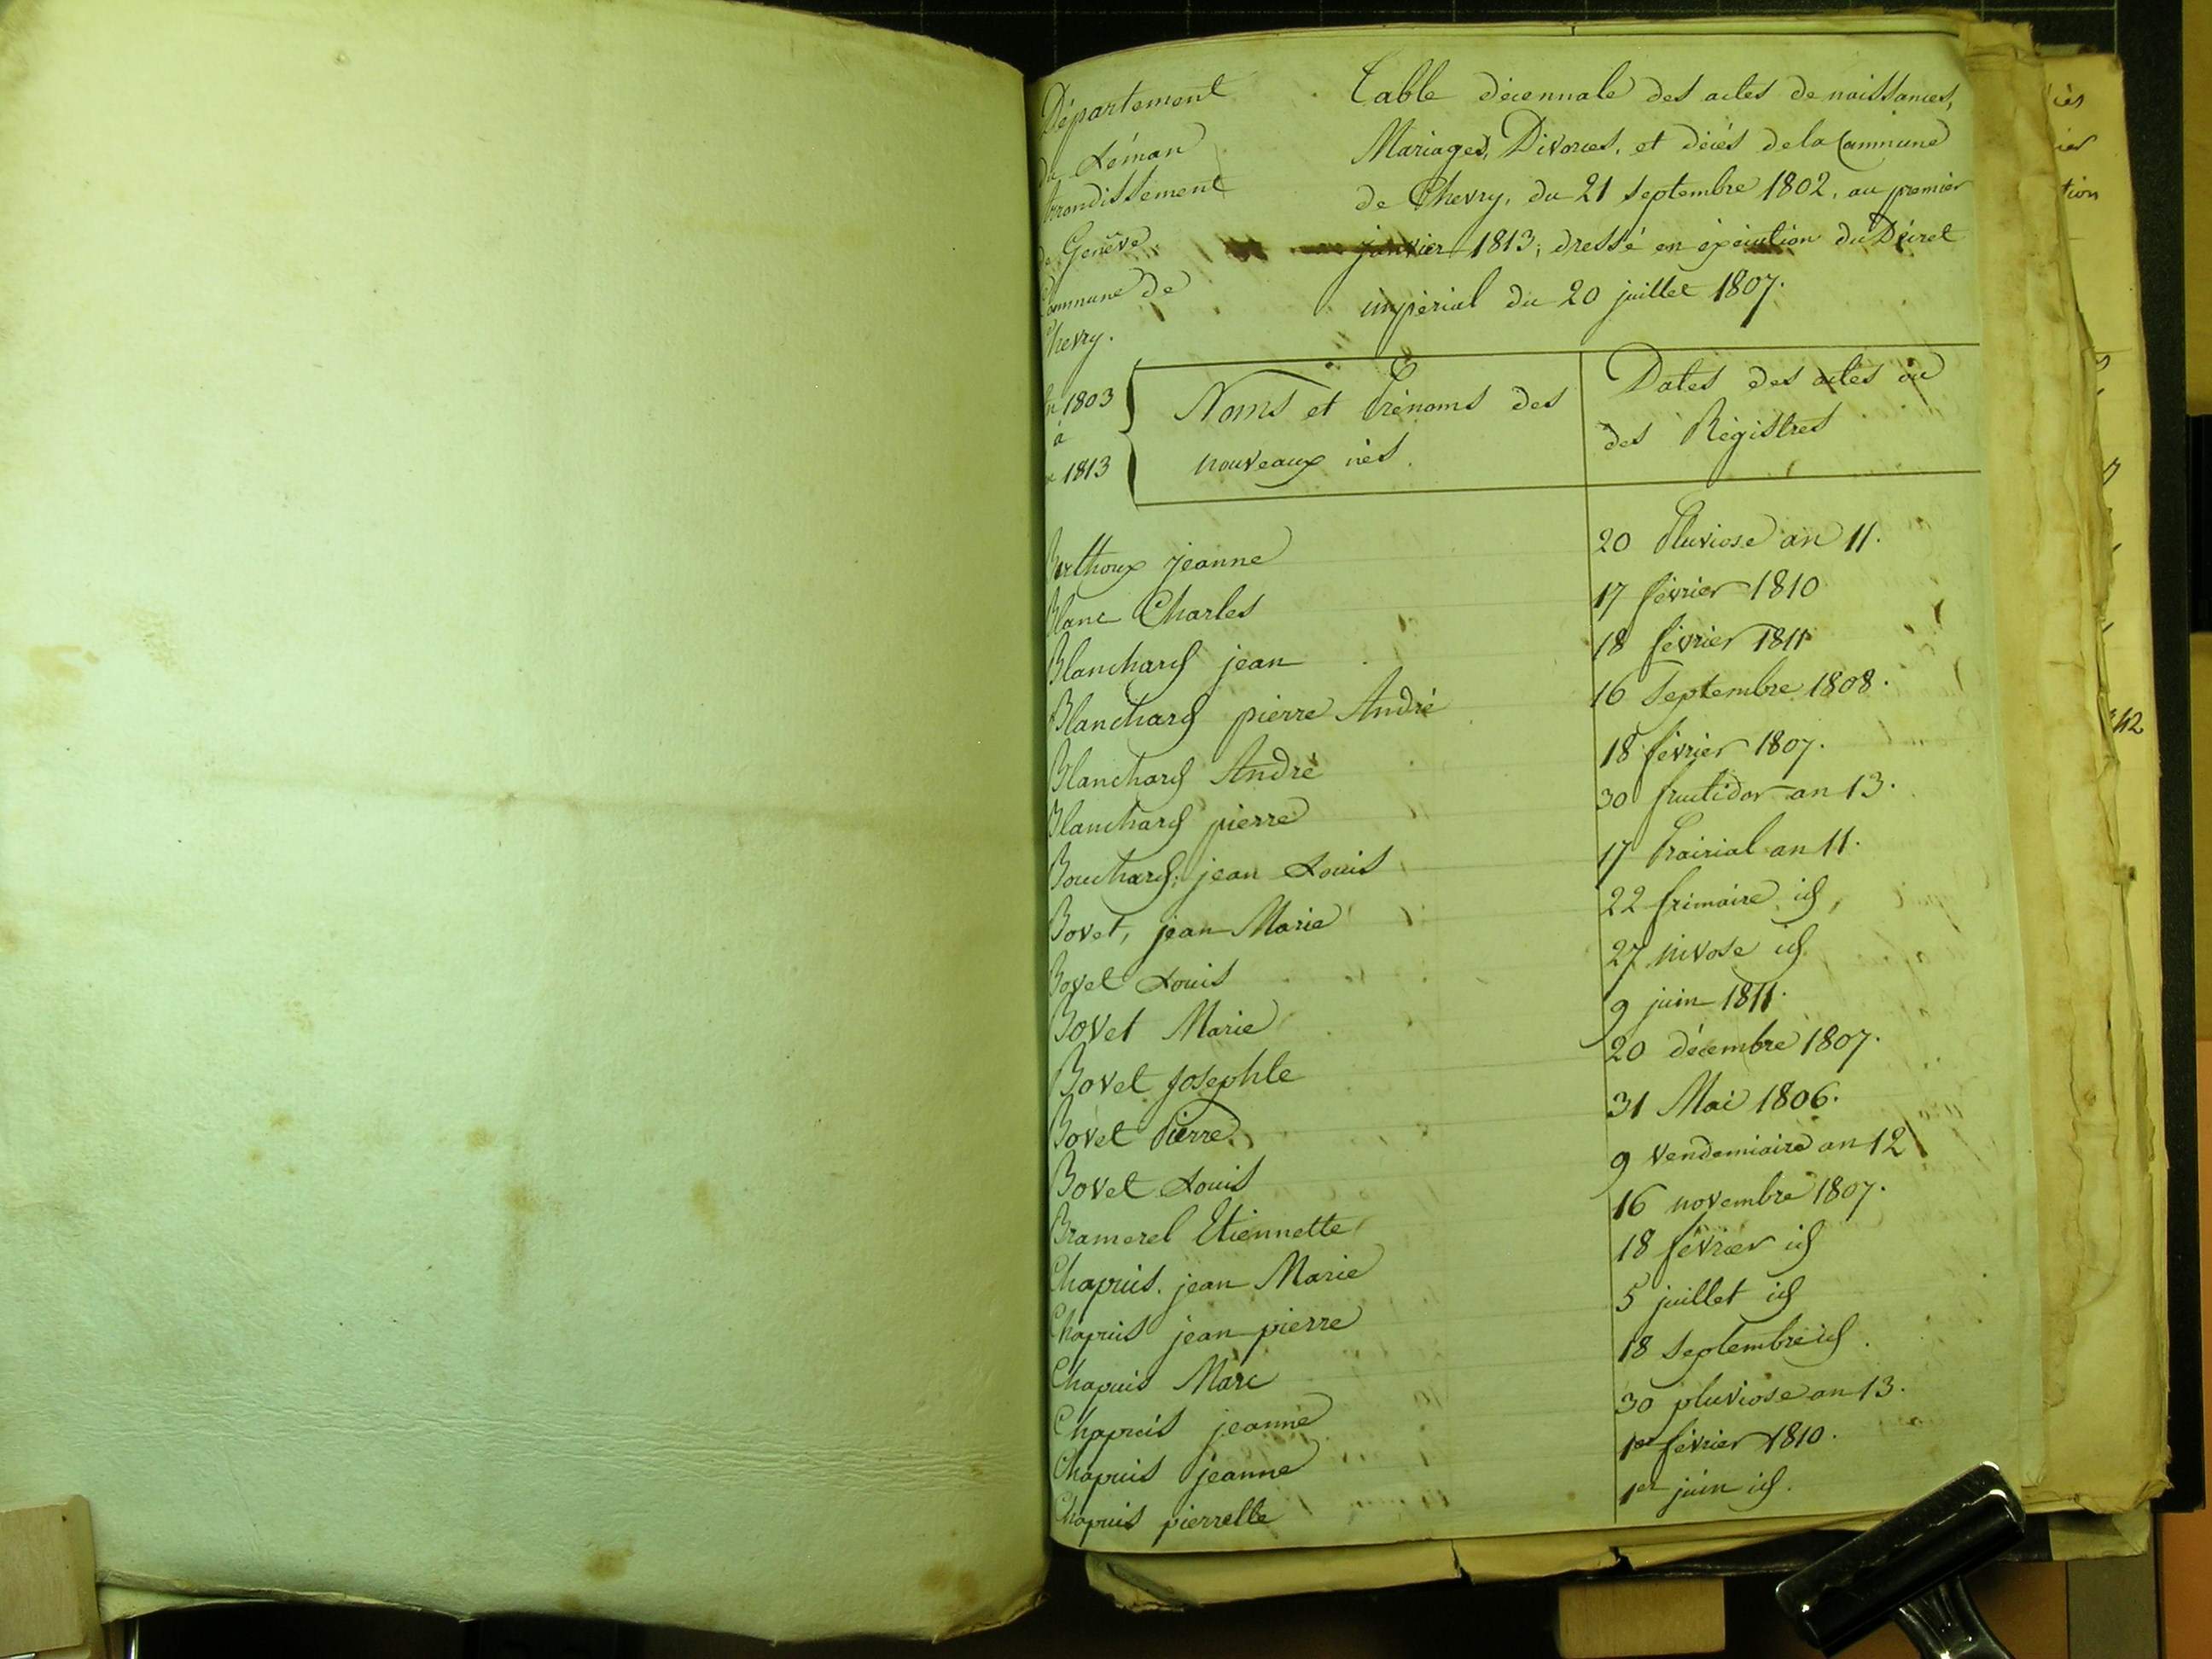 Département
du Léman
Arrondissement
de Genève
Commune de
Chevry.
Table décennale des actes de naissances,
Mariages, Divorces, et décès de la Commune
de Chevry, du 21 Septembre 1802, au premier
janvier 1813; dressé en éxécution du Décret
impérial du 20 juillet 1807.
1803
à
1813
Noms et Prénoms des
nouveaux nés.
Dates des actes ou
des Régistres
Berthoux jeanne 20 Pluviose an 11.
Blanc Charles 17 février 1810
Blanchard jean 18 février 1811
Blanchard pierre André 16 Septembre 1808.
Blanchard André 18 février 1807.
Blanchard pierre 30 fructidor an 13.
Bouchard, jean Louis 17 Prairial an 11.
Bovet, jean Marie 22 frimaire id,
Bovet Louis 27 nivose id.
Bovet Marie 9 juin 1811.
Bovet Josephte 20 décembre 1807.
Bovet Pierre 31 Mai 1806.
Bovet Louis 9 Vendemiaire an 12
Bramerel Etiennette 16 novembre 1807.
Chapuis. jean Marie 18 février id
Chapuis jean pierre 5 juillet id
Chapuis Marc 18 Septembre id.
Chapuis jeanne 30 pluviose an 13.
Chapuis jeanne 1er février 1810.
Chapuis pierrette 1er juin id.
cès
ier
tion
42